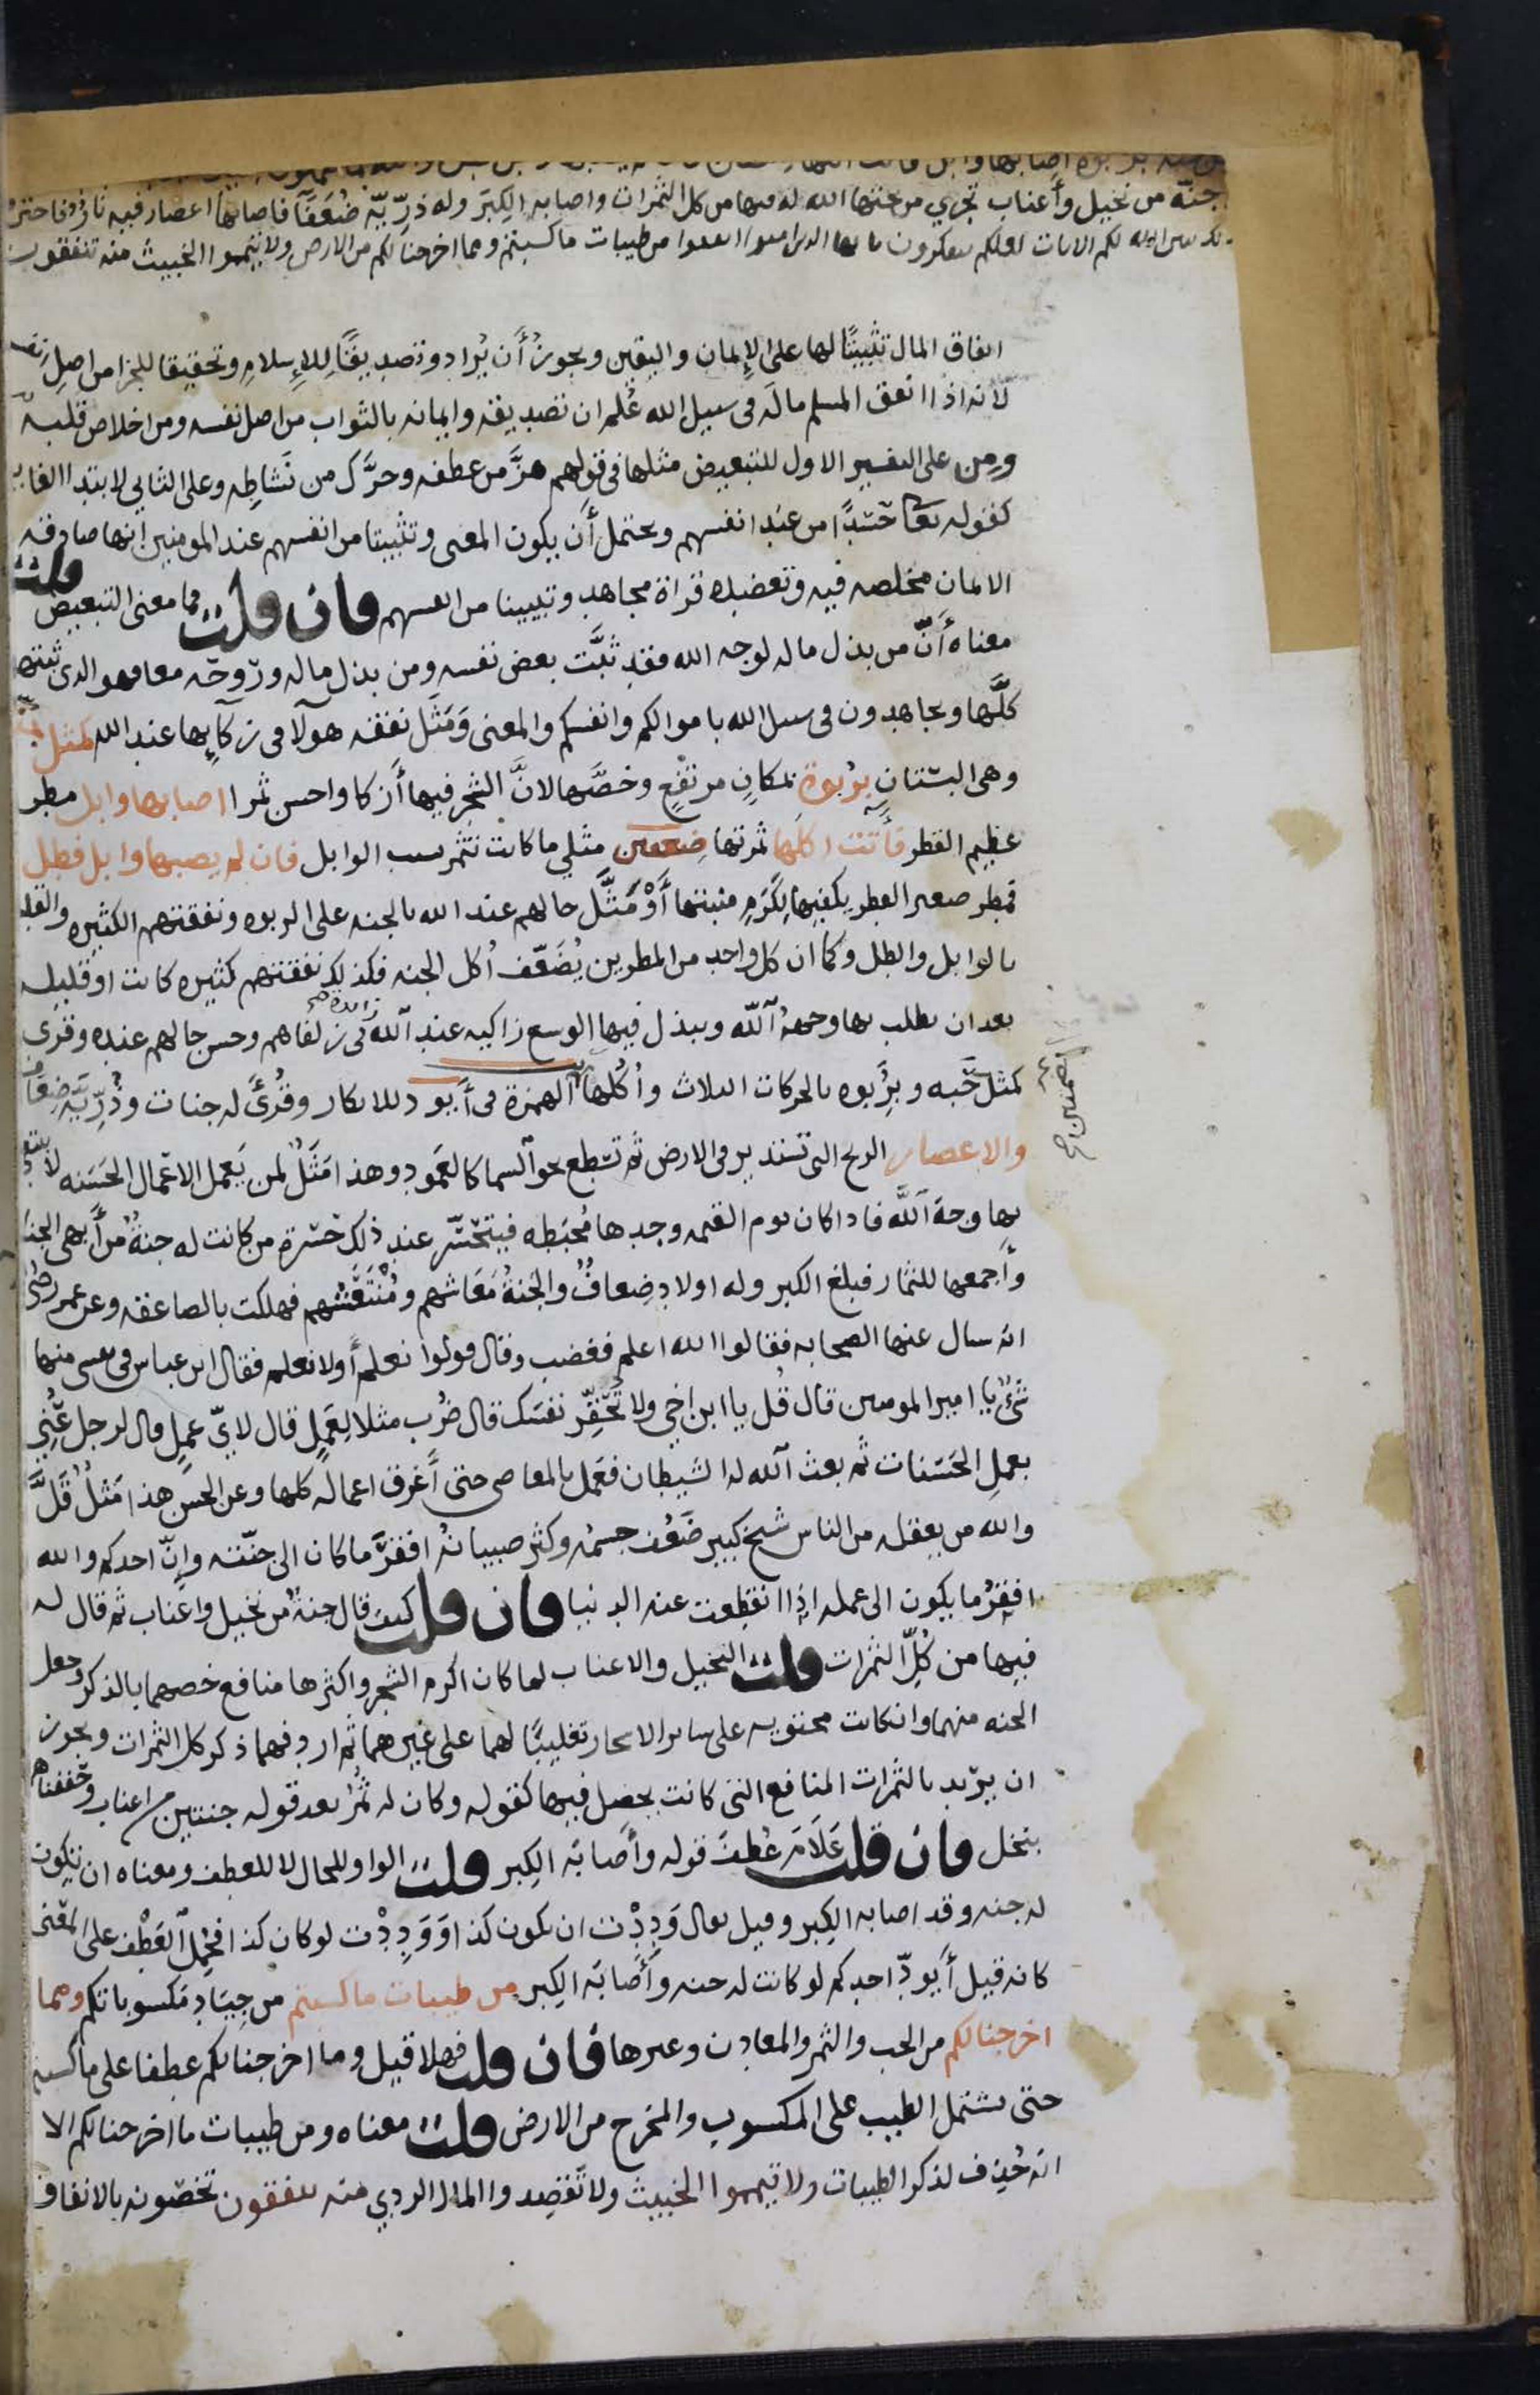 جنة من نخيل وأعناب تجري من تحتها الانهار له فيها من كل الثمرات واصابه الكِبَر وله ذرِّيّة ضُعَفَآ فاصابهآ اعصار فيه نارٌ فاحترقت
يبين الله لكم الايات لعلكم تتفكرون يا ايها الذين امنوا انفقوا من طيبات ما كسبتم ومما اخرجنا لكم من الارض ولا تيمموا الخبيث منه تنفقون
انفاق المال تثبيتًا لها على الإيمان واليقين ويجوز أن يُراد وتصديقًا للإسلام وتحقيقا للجزا من اصلِ
لانه اذا انفق المسلم مالَه في سبيل الله عُلم ان تصديقه وايمانه بالثواب من اصل نفسه ومن اخلاص قلبه
ومِن على التفسير الاول للتبعيض مثلها في قولهم هزَّ من عطفه وحرَّك من نَشاطِه وعلى الثاني لابتدا الغايه
كقوله تعا حَسَدًا من عند انفسهم ويحتمل أن يكون المعنى وتثبيتا من انفسهم عند المومنين انها صادقه
الايمان مخلصه فيه وتعضده قراة مجاهد وتبيينا من انفسهم فان قلت فما معنى التبعيض قلت
معناه أنّ من بذل ماله لوجه الله فقد ثبَّت بعض نفسه ومن بذل ماله وروحه معا فهو الذى ثبتها
كلَّها وتجاهدون فى سبيل الله باموالكم وانفسكم والمعنى وَمَثَل نفقه هولآ فى زكآيها عند الله كمثل جنّه
وهى البستان بربوة بمكانٍ مرتفعٍ وخصَّها لانَّ الشجر فيها أزكا واحسن ثمرا اصابها وابل مطر
عظيم القطر فأتت اكلها ثمرتها ضعفين مثلي ما كانت تثمر بسبب الوابل فان لم يصبها وابل فطل
فمطر صغير القطر يكفيها لِكَرَم منبتها أَوْ مَثَّل حالهم عند الله بالجنه على الربوه ونفقتهم الكثيره والقليله
بالوابل والطل وكما ان كل واحد من المطرين يُضَعّف أُكل الجنه فكذلك نفقتهم كثيره كانت او قليله
بعد ان يطلب بها وجهُ آلله ويبذل فيها الوسع زاكيه عند آلله زايده فى زلفاهم وحسن حالهم عنده وقرى
كمثل حَبه وبِرُبوه بالحركات الثلاث وأُكُلها الهمزة فى أيود للانكار وقُرئَ له جنات وذُرّيّة ضِعَاف
والاعصار الريح التى تستدير فى الارض ثم تسطع نحو آلسما كالعَمود وهذا مَثَلٌ لمن يَعمل الاعمال الحَسَنه لا يبتغي
بها وجهَ آللَّه فاذا كان يوم القيمه وجدها مُحبَطه فيتحَسّر عند ذلك حَسْرة من كانت له جنةٌ من أبهى الجنان
وأجمعها للثمار فبلغ الكبر وله اولاد ضِعافٌ والجَنةُ مَعَاشهم ومُنْتَعَشهم فهلكت بالصاعقه وعن عمر رضى
انه سال عنها الصحابه فقالوا الله اعلم فغضب وقال قولوا نعلم أو لا نعلم فقال ابن عباس فى نفسى منها
شئٌ يا امير المومنين قال قُل يا ابن اخي ولا تُحَقِّر نفسَك قال ضُرب مثلا لِعَمَلٍ قال لايّ عملٍ قال لرجل غَنِيٍّ
يعمل الحَسَنات ثم بعث آلله له الشيطان فعَمل بالمعاصى حتى أَغرق اعماله كلها وعن الحسن هذا مَثَلٌ قَلَّ
والله من يعقله من الناس شيخ كبير ضَعُف جسمه وكثر صبيانُه افقرُ ما كان الى جنّته وإنّ احدكم والله
افقرُ ما يكون الى عمله اذا انقطعت عنه الدنيا فان قلت كيف قال جنةٌ من نخيل واعناب ثم قال له
فيها من كُلِّ الثمرات قلت النخيل والاعناب لما كان اكرم الشجر واكثرها منافع خصهما بالذكر وجعل
الجنه منهما وان كانت محتويه على ساير الاشجار تغليبًا لهما على غيرهما ثم اردفهما ذكر كل الثمرات ويجوز
ان يريد بالثمرات المنافع التى كانت تحصل فيها كقوله وكان له ثُمُرٌ بعد قوله جنتين من اعناب وحففناهما
بنخل فان قلت عَلَامَ عُطف قوله وأَصابَه الكِبر قلت الواو للحال لا للعطف ومعناه ان تكون
له جنه وقد اصابه الكِبر وقيل يقال وَدِدْت ان يكون كذا وَوَدِدْت لو كان كذا فحُمل آلعَطْف على المعنى
كانه قيل أَيودّ احدكم لو كانت له جنه وأَصابَه الكِبر من طيبات ما كسبتم من جِيَاد مَكسوباتكم ومما
اخرجنا لكم من الحب والثمر والمعادن وغيرها فان قلت فهلا قيل وما اخرجنا لكم عطفا على ما كسبتم
حتى يشتمل الطيب على المكسوب والمخرج من الارض قلت معناه ومن طيبات ما اخرجنا لكم الا
انه حُذِف لذكر الطيبات ولا تيمموا الخبيث ولا تَقصِدوا المال الردي منه تنفقون تخصّونه بالانفاق